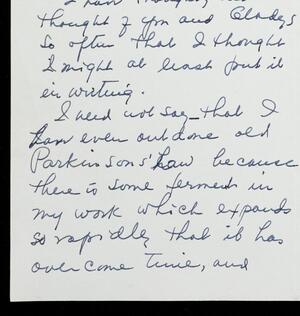 thought of you and Gladys
so often that I thought
I might at least put it
in writing.
I need not say that I
have even outdone old
Parkinsons' Law because
there is some ferment in
my work which expands
so rapidly that it has
overcome Time, and